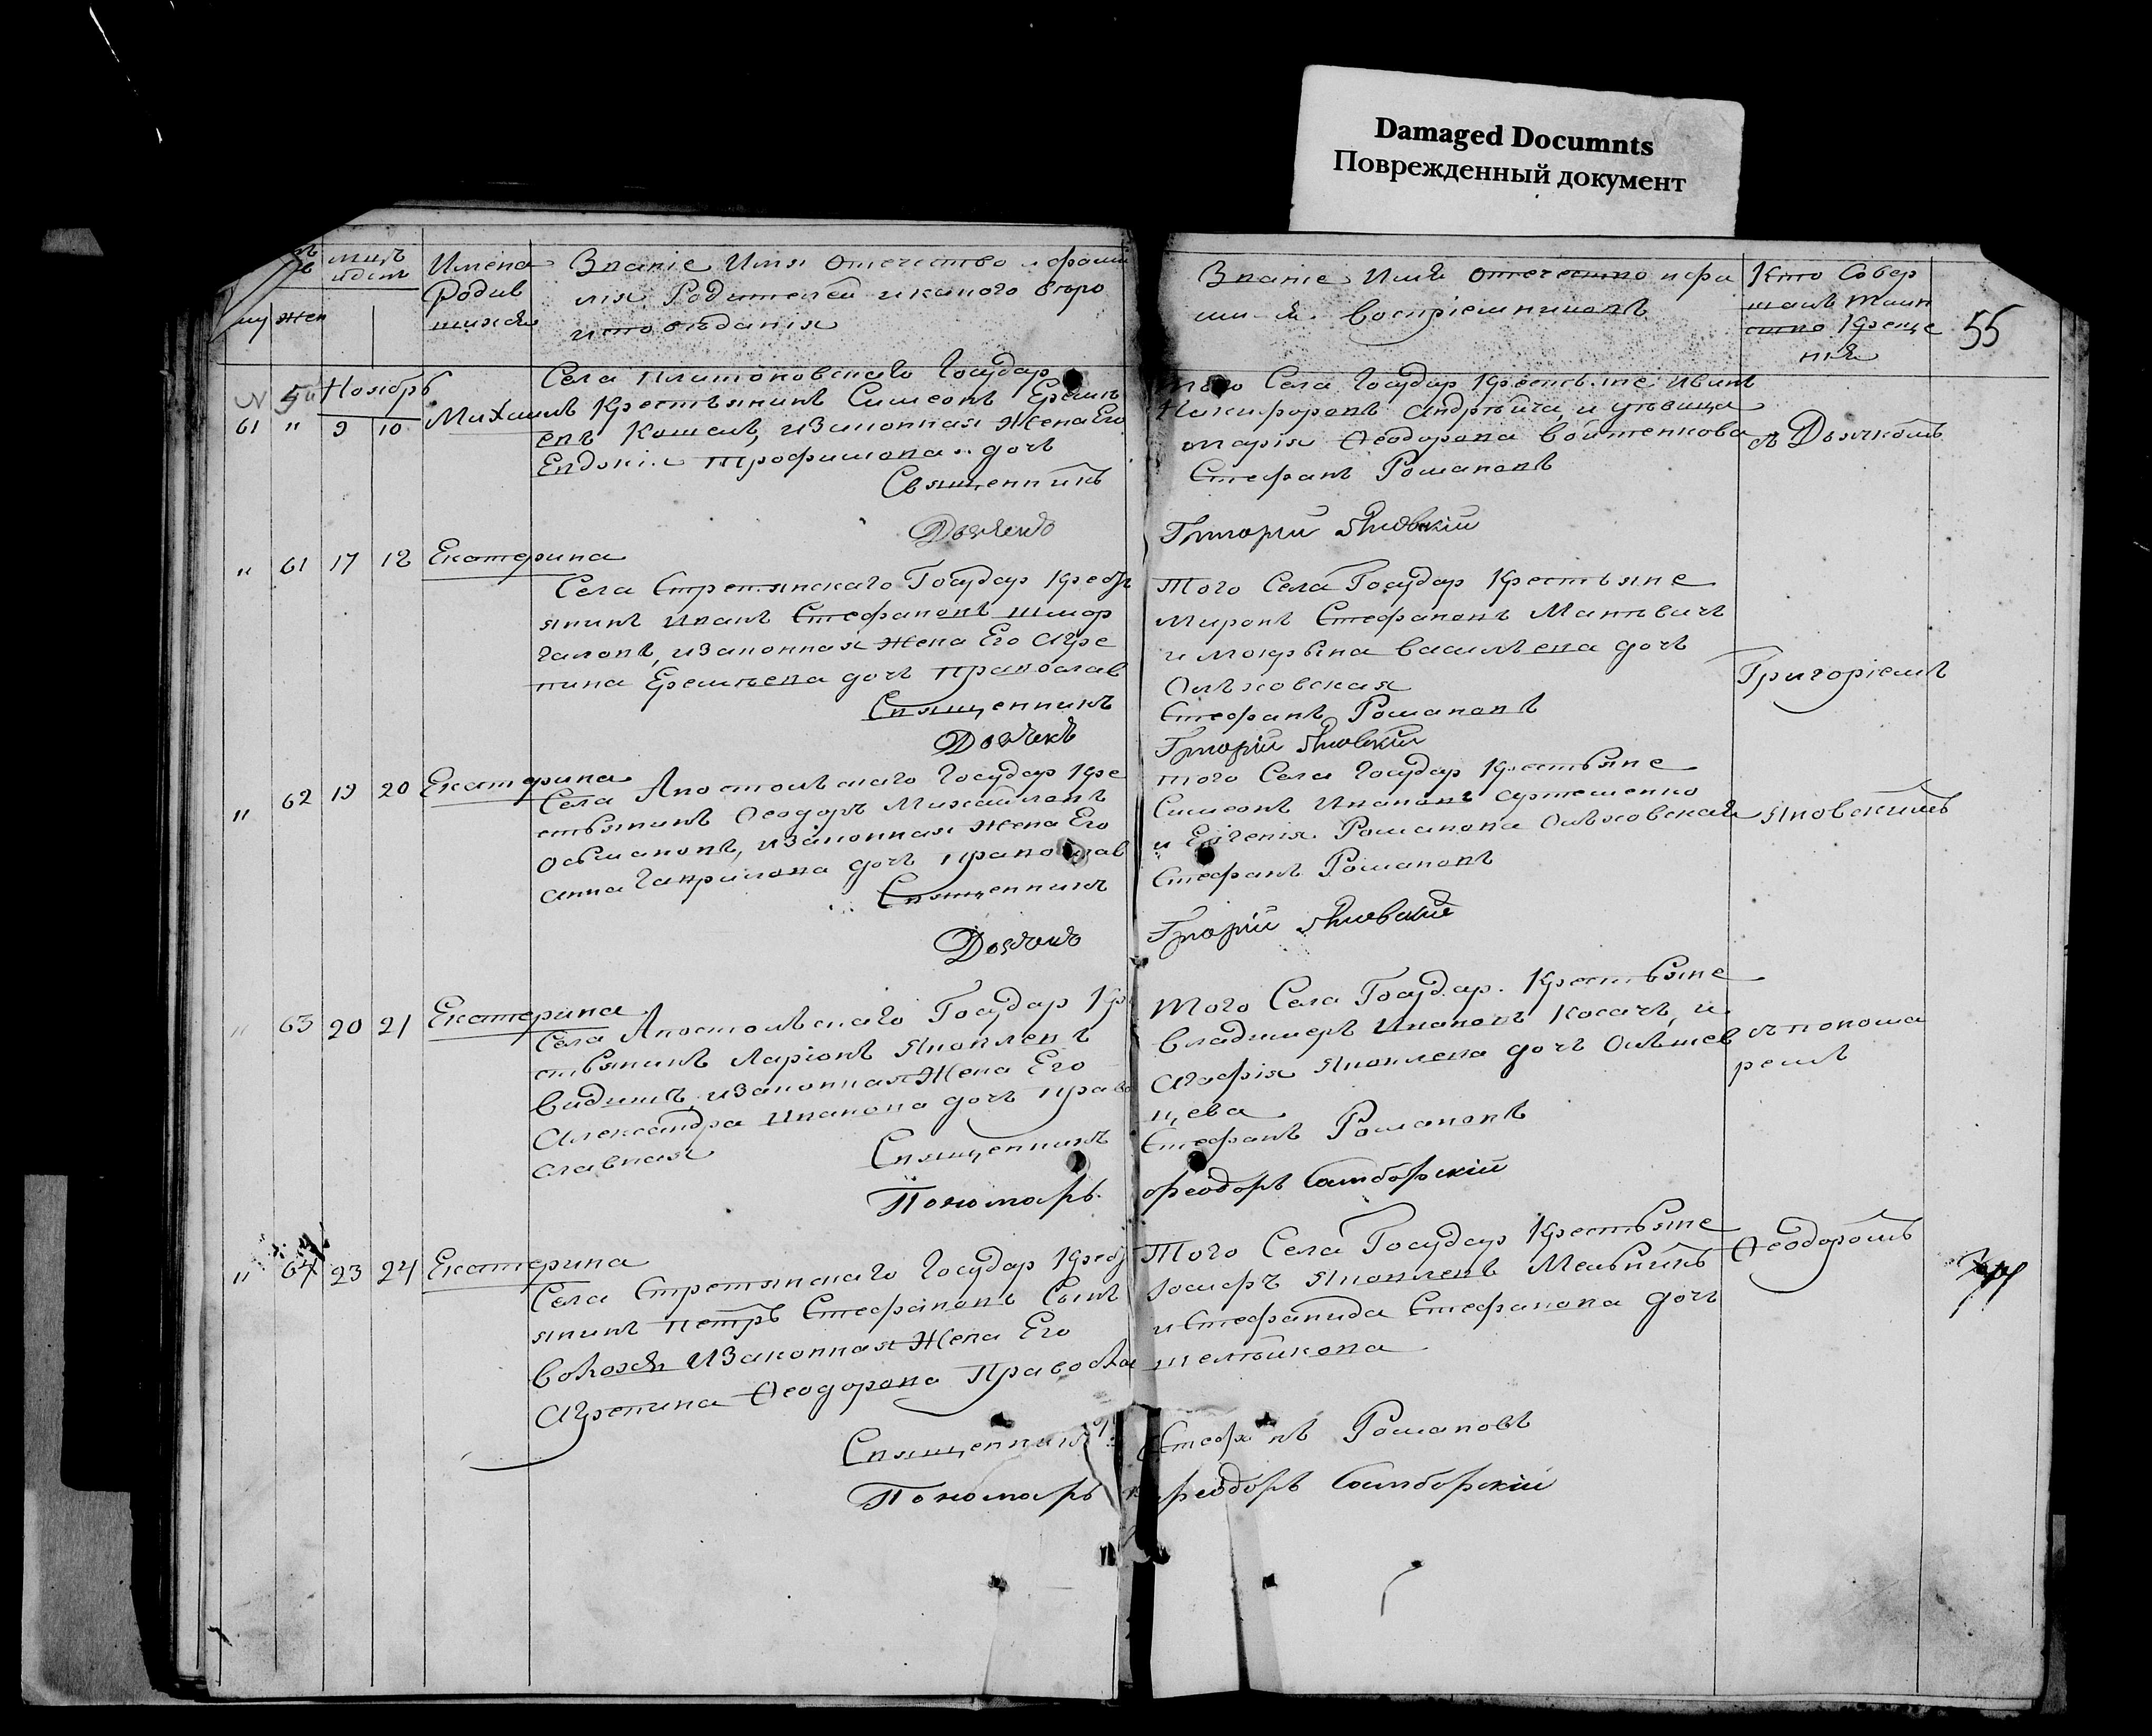 Damaged Documnts
Поврежденный документ
му жен
Имена Родив шихся
Званіе Имя Отечество и фами
лія Родителей и какого вѣро
исповѣданія
Званіе Имя Отечество и фа
миля воспріемниковъ
Кто Совер
шалъ таин
ство Креще
нія
55
Ноябрь
61 " 9 10 Михаилъ
Села Платоновскаго Государ
Крестьянинъ Симеонъ
Кошель, изаконная Жена Его
Евдокія Трофимова дочь
Священникъ
Дьячекъ
того Села Государ Крестьяне Иванъ
Никифоровъ и дѣвица
марія Ѳеодорова Войтенкова
Стефанъ Романовъ
Григорій Яновскій
съ Дьячкомъ
" 61 17 18 Екатерина
Села Стретинскаго Государ Крестья
янинъ Иванъ Стефановъ
изаконная Жена Его Агре
пина Еремѣева дочь православ
Священникъ
Дьячекъ
Того Села Государ Крестьяне
Миронъ Стефановъ
и мокрына Васильева дочь
Ольховская
Стефанъ Романовъ
Григорій Яновскій
Григоріемъ
" 62 19 20 Екатерина
Села Апостольскаго Государ Кре
стьянинъ Ѳеодоръ Михайловъ
изаконная жена Его
анна Гаврилова дочь православ
Священникъ
Дьячекъ
того Села Государ Крестьяне
Симеонъ Ивановъ Артеменко
и Евгенія Романова Ольховская
Стефанъ Романовъ
Григорій Яновскій
Яновскимъ
" 63 20 21 Екатерина
Села Апостольскаго Государ Кр
стьянинъ Ларіонъ Яковлевъ
изаконная Жена Его
Александра Иванова дочь право
славная
Священникъ
Пономарь
Того Села Государ. Крестьяне
Владимеръ Ивановъ Косачъ, и
Агафія Яковлева дочь
цева
Стефанъ Романовъ
Феодоръ Самборскій
съ понома
ремъ
" 64 23 24 Екатерина
Села Стретинскаго Государ Крестья
янинъ Петръ Стефановъ Сынъ
изаконная Жена Его
Агрепина Ѳеодорова Правосла
Священникъ
Пономарь
Того Села Государ Крестьяне
Іосифъ Яковлевъ Мельникъ
и Стефанида Стефанова дочь
Стефанъ Романовъ
Феодоръ Самборскій
Ѳеодоромъ